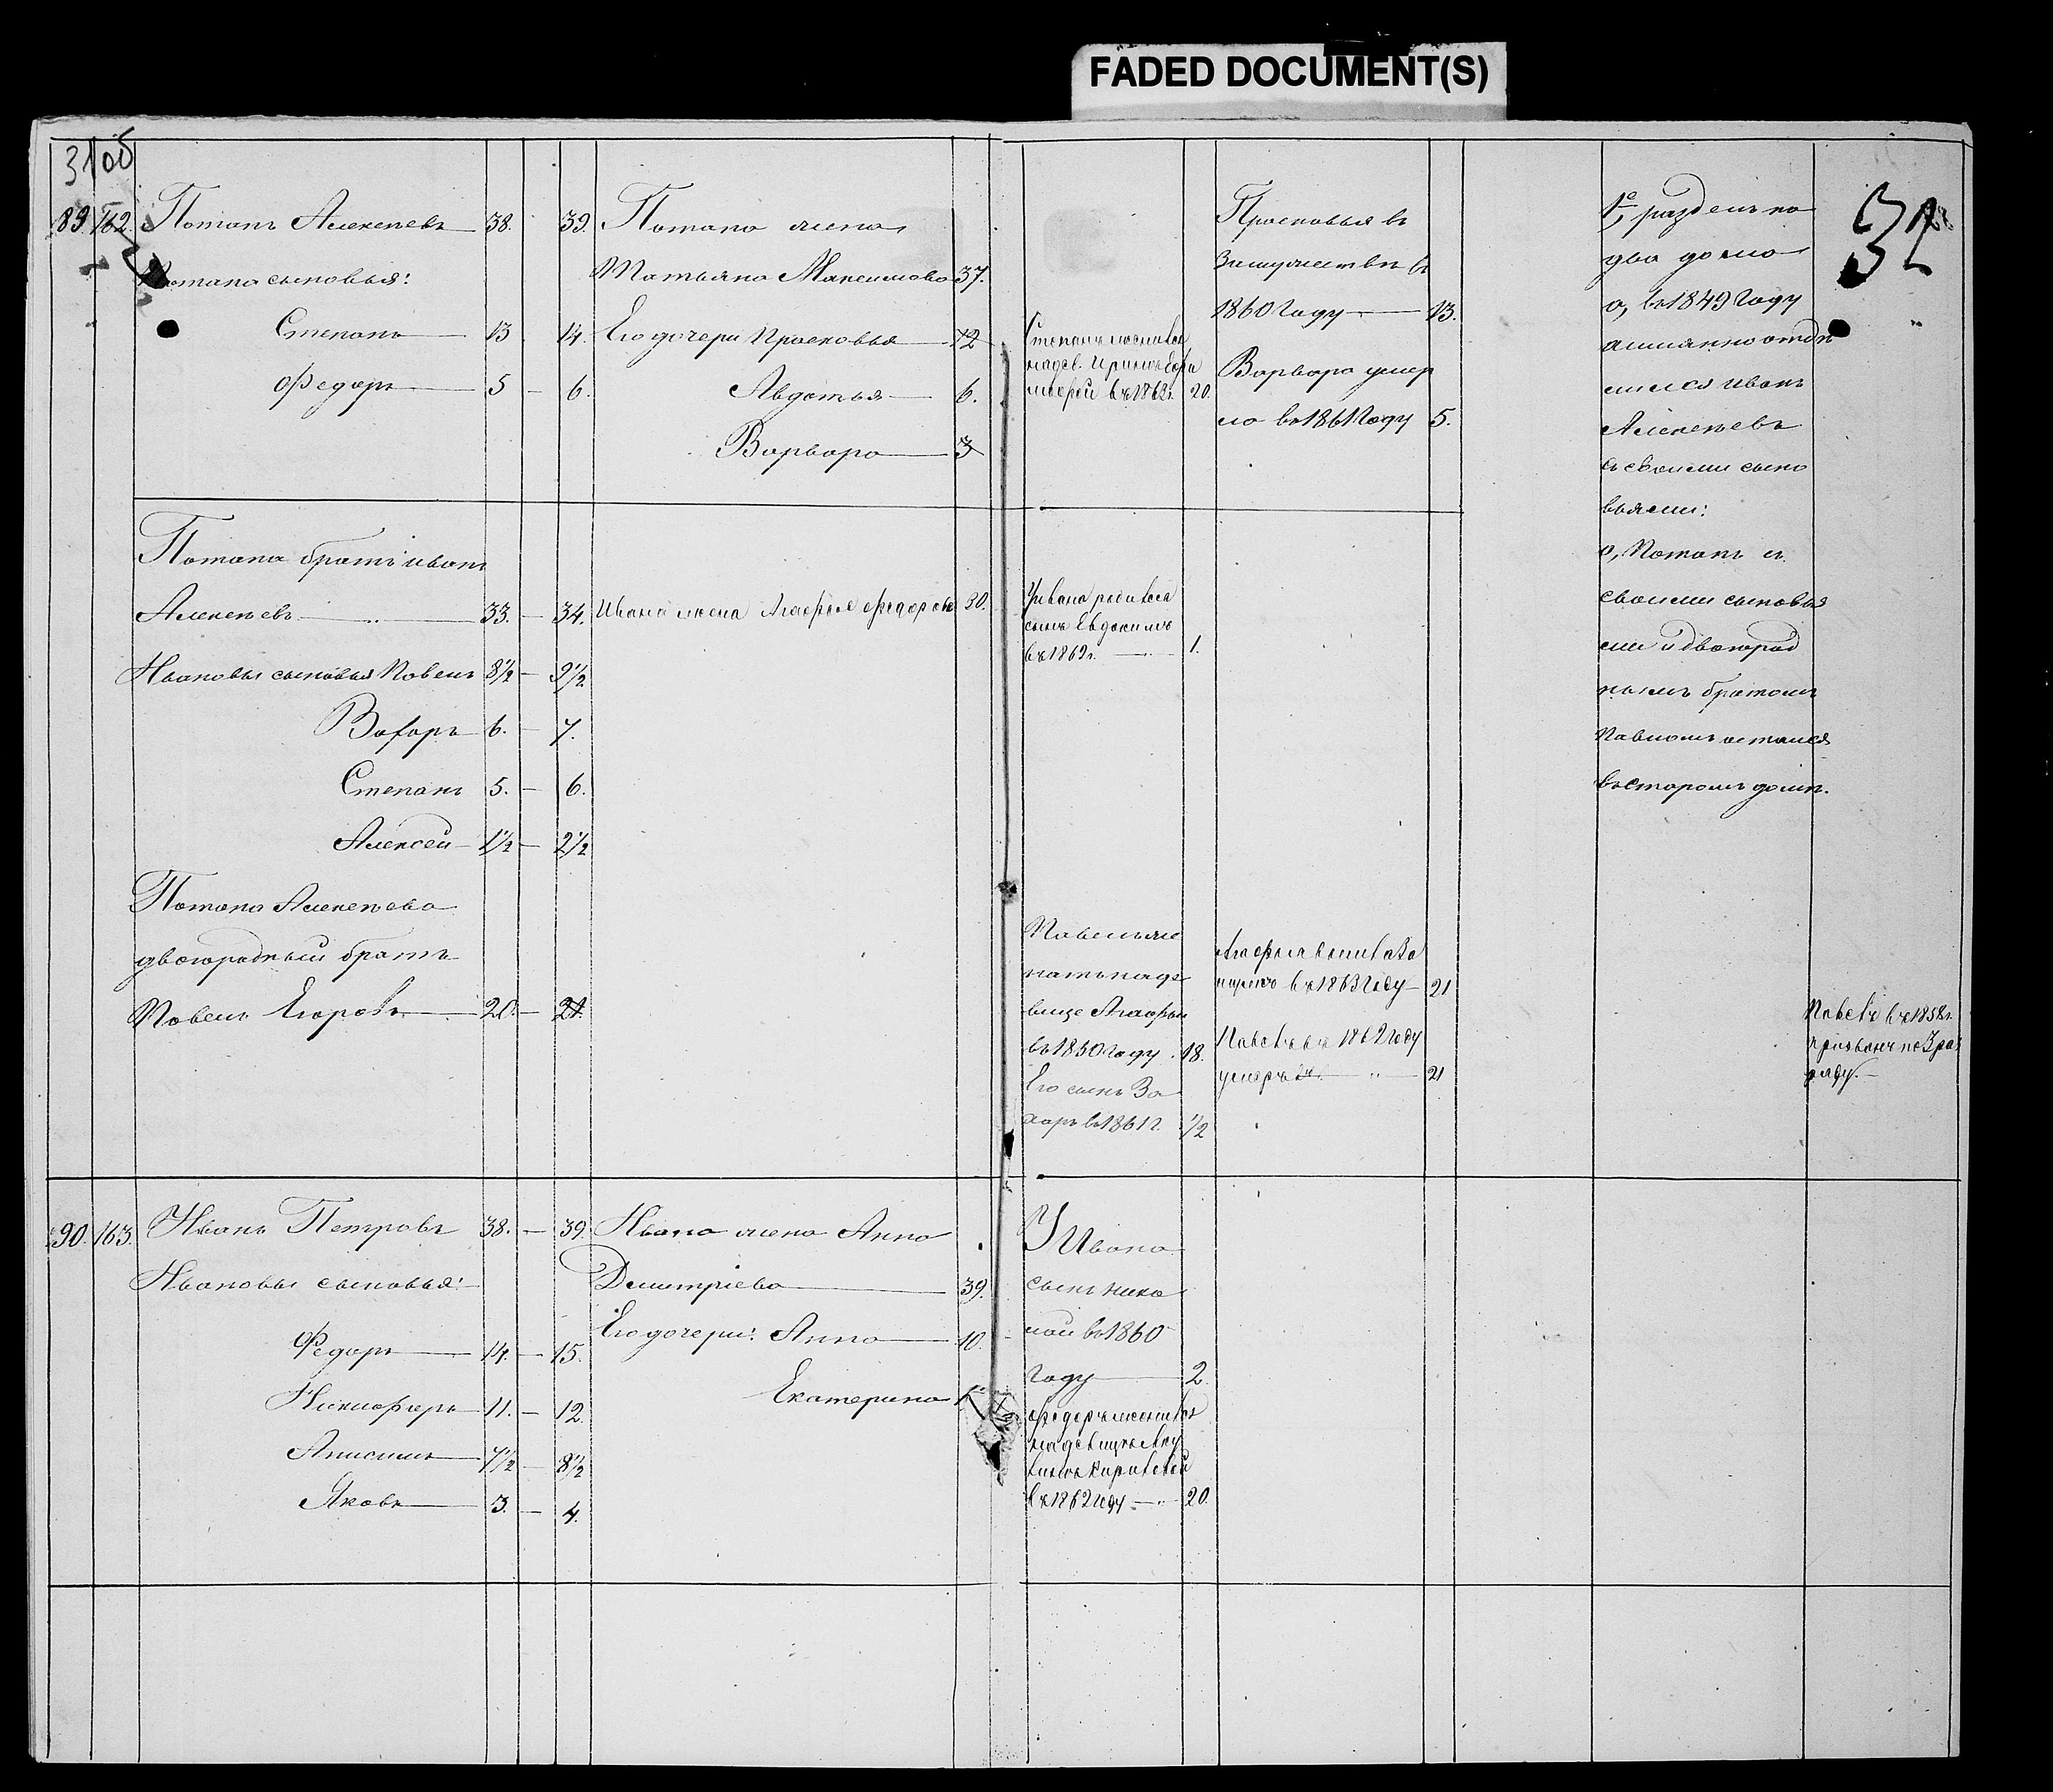 FADED DOCUMENT(S)
31 об
32
89. 162. Потапъ Алексѣевъ 38. 39.
Потапа сыновья:
Степанъ 13 14.
Федоръ 5 — 6.
Потапа жена
Татьяна Максимова 37.
Его дочери Прасковья 12
Авдотья 6.
Варвара 3
Степанъ женился
на дев.
в 1862г. 20.
Прасковья въ
замужествѣ въ
1860 году 13.
Варвара умер
ла въ 1861 году 5.
1е, раздѣлъ на
два дома
а, въ 1849 году
отдѣ
лился Иванъ
Алексѣевъ
съ своими сыно
вьями:
о, Потапъ съ
своими сыновья
ми и двоюрод
нымъ братомъ
Павломъ остался
въ старомъ домѣ.
Потапа братъ Иванъ
Алексѣевъ 33. — 34.
Ивановы сыновья Павелъ 8½ — 9½
Захаръ 6. — 7.
Степанъ 5. — 6.
Алексѣй 1½ — 2½
Ивана жена Агафья Федорова 30.
У Ивана родился
сынъ Евдокимъ
въ 1862г. 1.
Потапа Алексѣева
двоюродный братъ
Павелъ Егоровъ 20. — 21.
Павелъ же
натъ на дѣ
вице Агафьи
въ 1850 году 18.
Его сынъ За
харъ въ 1861 г. ½
Агафья вышла за
мужъ въ 1863 году 21
Павелъ въ 1862 году
умеръ 21
Павелъ въ 1858г.
призванъ по 3 раз
ряду.
90. 163. Иванъ Петровъ 38. — 39.
Ивановы сыновья:
Федоръ 14. — 15.
Никифоръ 11. — 12.
Анисимъ 7½ — 8½
Яковъ 3. — 4.
Ивана жена Анна
Дмитріева 39.
Его дочери: Анна 10.
Екатерина
У Ивана
сынъ Нико
лай въ 1860
году 2.
Федоръ женился
на девицѣ
въ 1862 году 20.